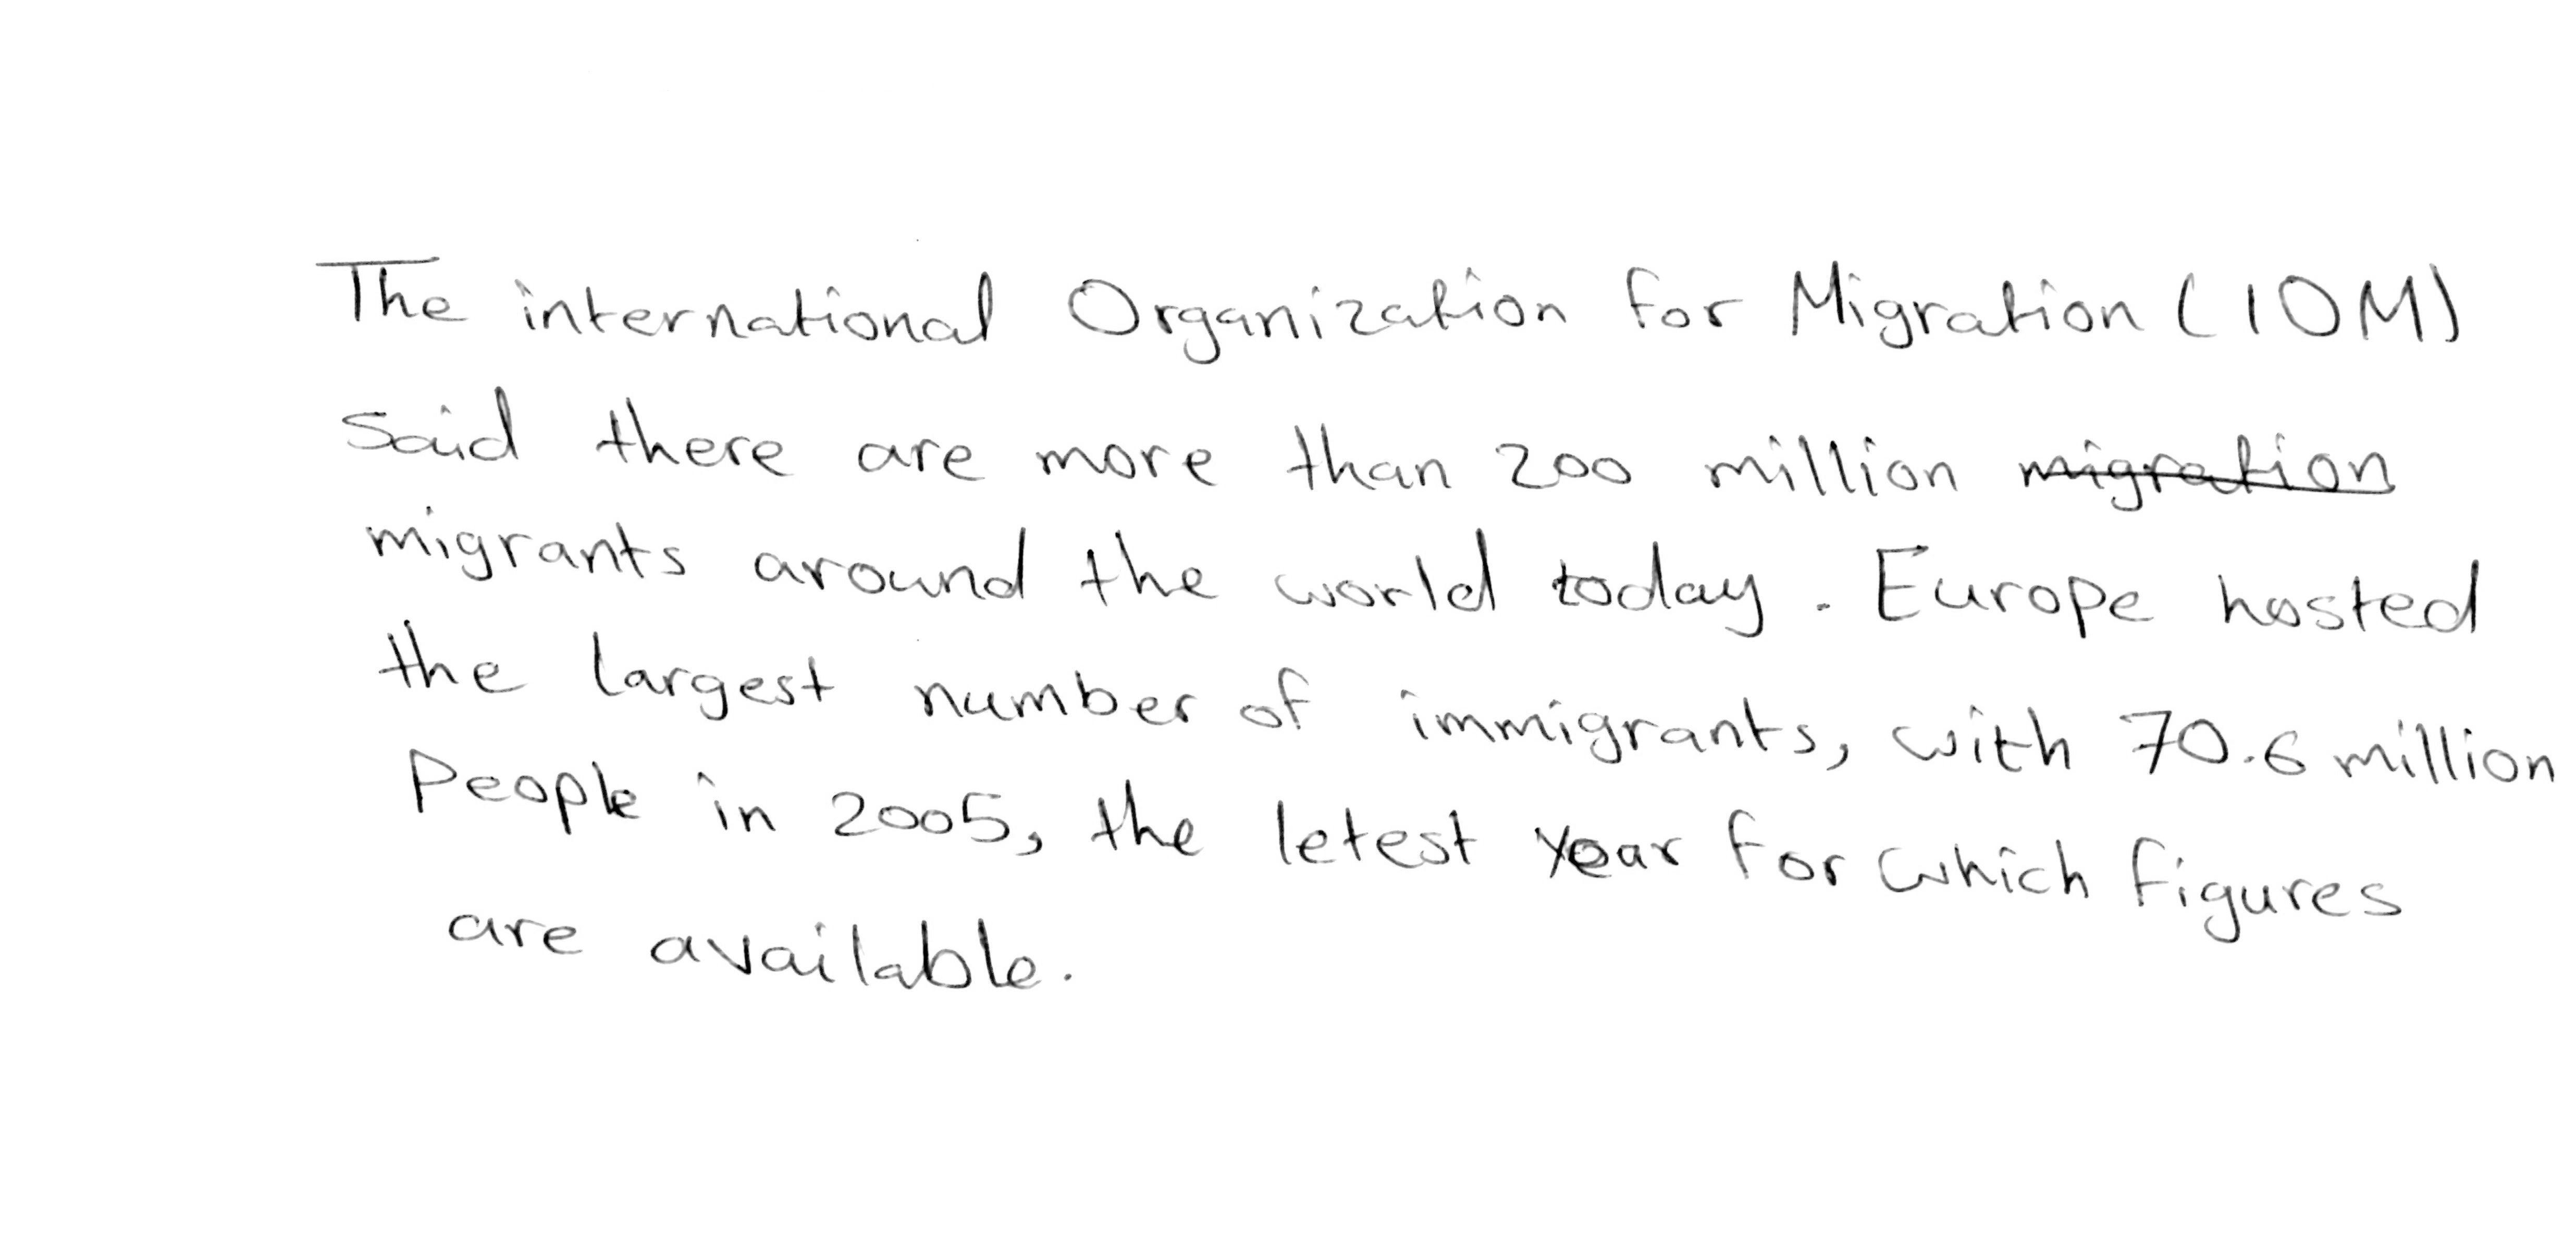 The international Organization for Migration (IOM)
Said there are more than 200 million ~~migration~~
migrants around the world today. Europe hosted
the largest number of immigrants, with 70.6 million
People in 2005, the letest year for which figures
are available.